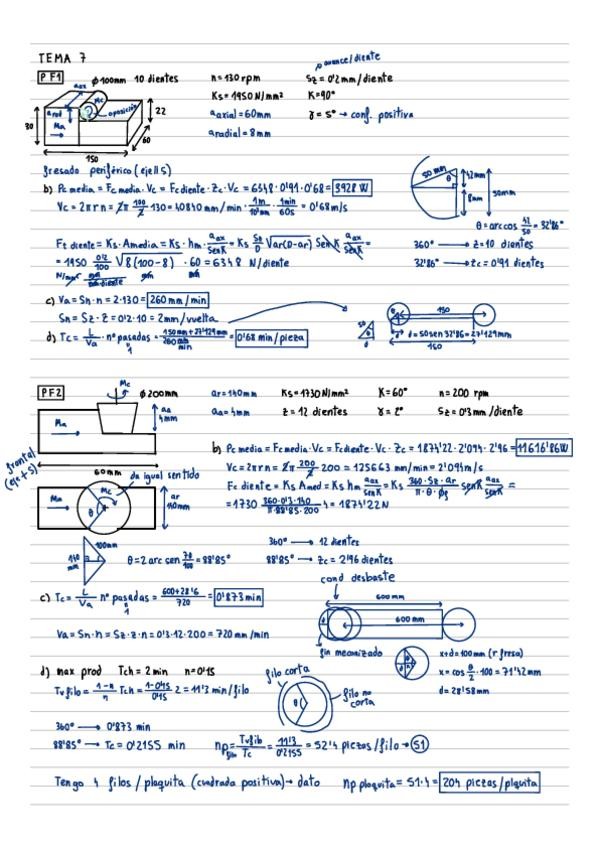 TEMA 7
avance/diente
PF1 ϕ100mm 10 dientes n=130 rpm Sz=0'2 mm/diente
Ks=1950 N/mm² K=90°
aaxial=60mm γ=5°→ conf. positiva
aradial=8mm
aax
Mc
arad
oposición
Ma
30
22
60
150
fresado periférico (eje II S)
b) Pc media = Fc media · Vc = Fc diente · Zc · Vc = 6348 · 0'91 · 0'68 = 3928 W
Vc = 2πrn = 2π 100/2 130 = 40840 mm/min · 1m/10³mm · 1min/60s = 0'68 m/s
50 mm
θ
42mm
8mm
50mm
θ = arc cos 42/50 = 32'86°
Fc diente = Ks · Amedia = Ks · hm · aax/senK = Ks Sz/D √ar(D-ar) SenK aax/senK =
= 1950 0'2/100 √8(100-8) · 60 = 6348 N/diente
N/mm² mm/mm·diente mm mm
360° → z=10 dientes
32'86° → zc=0'91 dientes
c) Va = Sn·n = 2·130 = 260 mm/min
Sn = Sz · Z = 0'2 · 10 = 2mm/vuelta
d) Tc = L/Va · nº pasadas = 150mm+27'129mm/260 mm/min = 0'68 min/pieza
1
150
50
θ
d
d = 50 sen 32'86 = 27'129mm
150
PF2 ϕ200mm ar=140mm Ks=1730N/mm² K=60° n=200 rpm
aa=4mm z=12 dientes γ=2° Sz=0'3mm/diente
Mc
Ma
aa
4mm
frontal
(eje ⊥ S)
600mm
da igual sentido
Ma
Mc
θ
ar
140mm
b) Pc media = Fc media · Vc = Fc diente · Vc · Zc = 1874'22 · 2'094 · 2'96 = 11616'86W
Vc = 2πrn = 2π 200/2 200 = 125663 mm/min = 2'094m/s
Fc diente = Ks Amed = Ks hm aax/senK = Ks 360·Sz·ar/π·θ·ϕf senK aax/senK =
= 1730 360·0'3·140/π·88'85·200 4 = 1874'22N
140
mm
100mm
θ = 2 arc sen 70/100 = 88'85°
360° → 12 dientes
88'85° → Zc = 2'96 dientes
cond desbaste
c) Tc = L/Va nº pasadas = 600+28'6/720 = 0'873 min
1
600 mm
600 mm
Va = Sn·n = Sz·z·n = 0'3·12·200 = 720 mm/min
fin mecanizado
x+d = 100mm (r fresa)
x = cos θ/2 · 100 = 71'42mm
d = 28'58mm
d) max prod Tch = 2 min n=0'15
Tvfilo = 1-n/n Tch = 1-0'15/0'15 2 = 11'3 min/filo
filo corta
θ
filo no
corta
360° → 0'873 min
88'85° → Tc = 0'2155 min np filo = Tvfilo/Tc = 11'3/0'2155 = 52'4 piezas/filo → 51
Tengo 4 filos / plaquita (cuadrada positiva) → dato np plaquita = 51·4 = 204 piezas/plquita